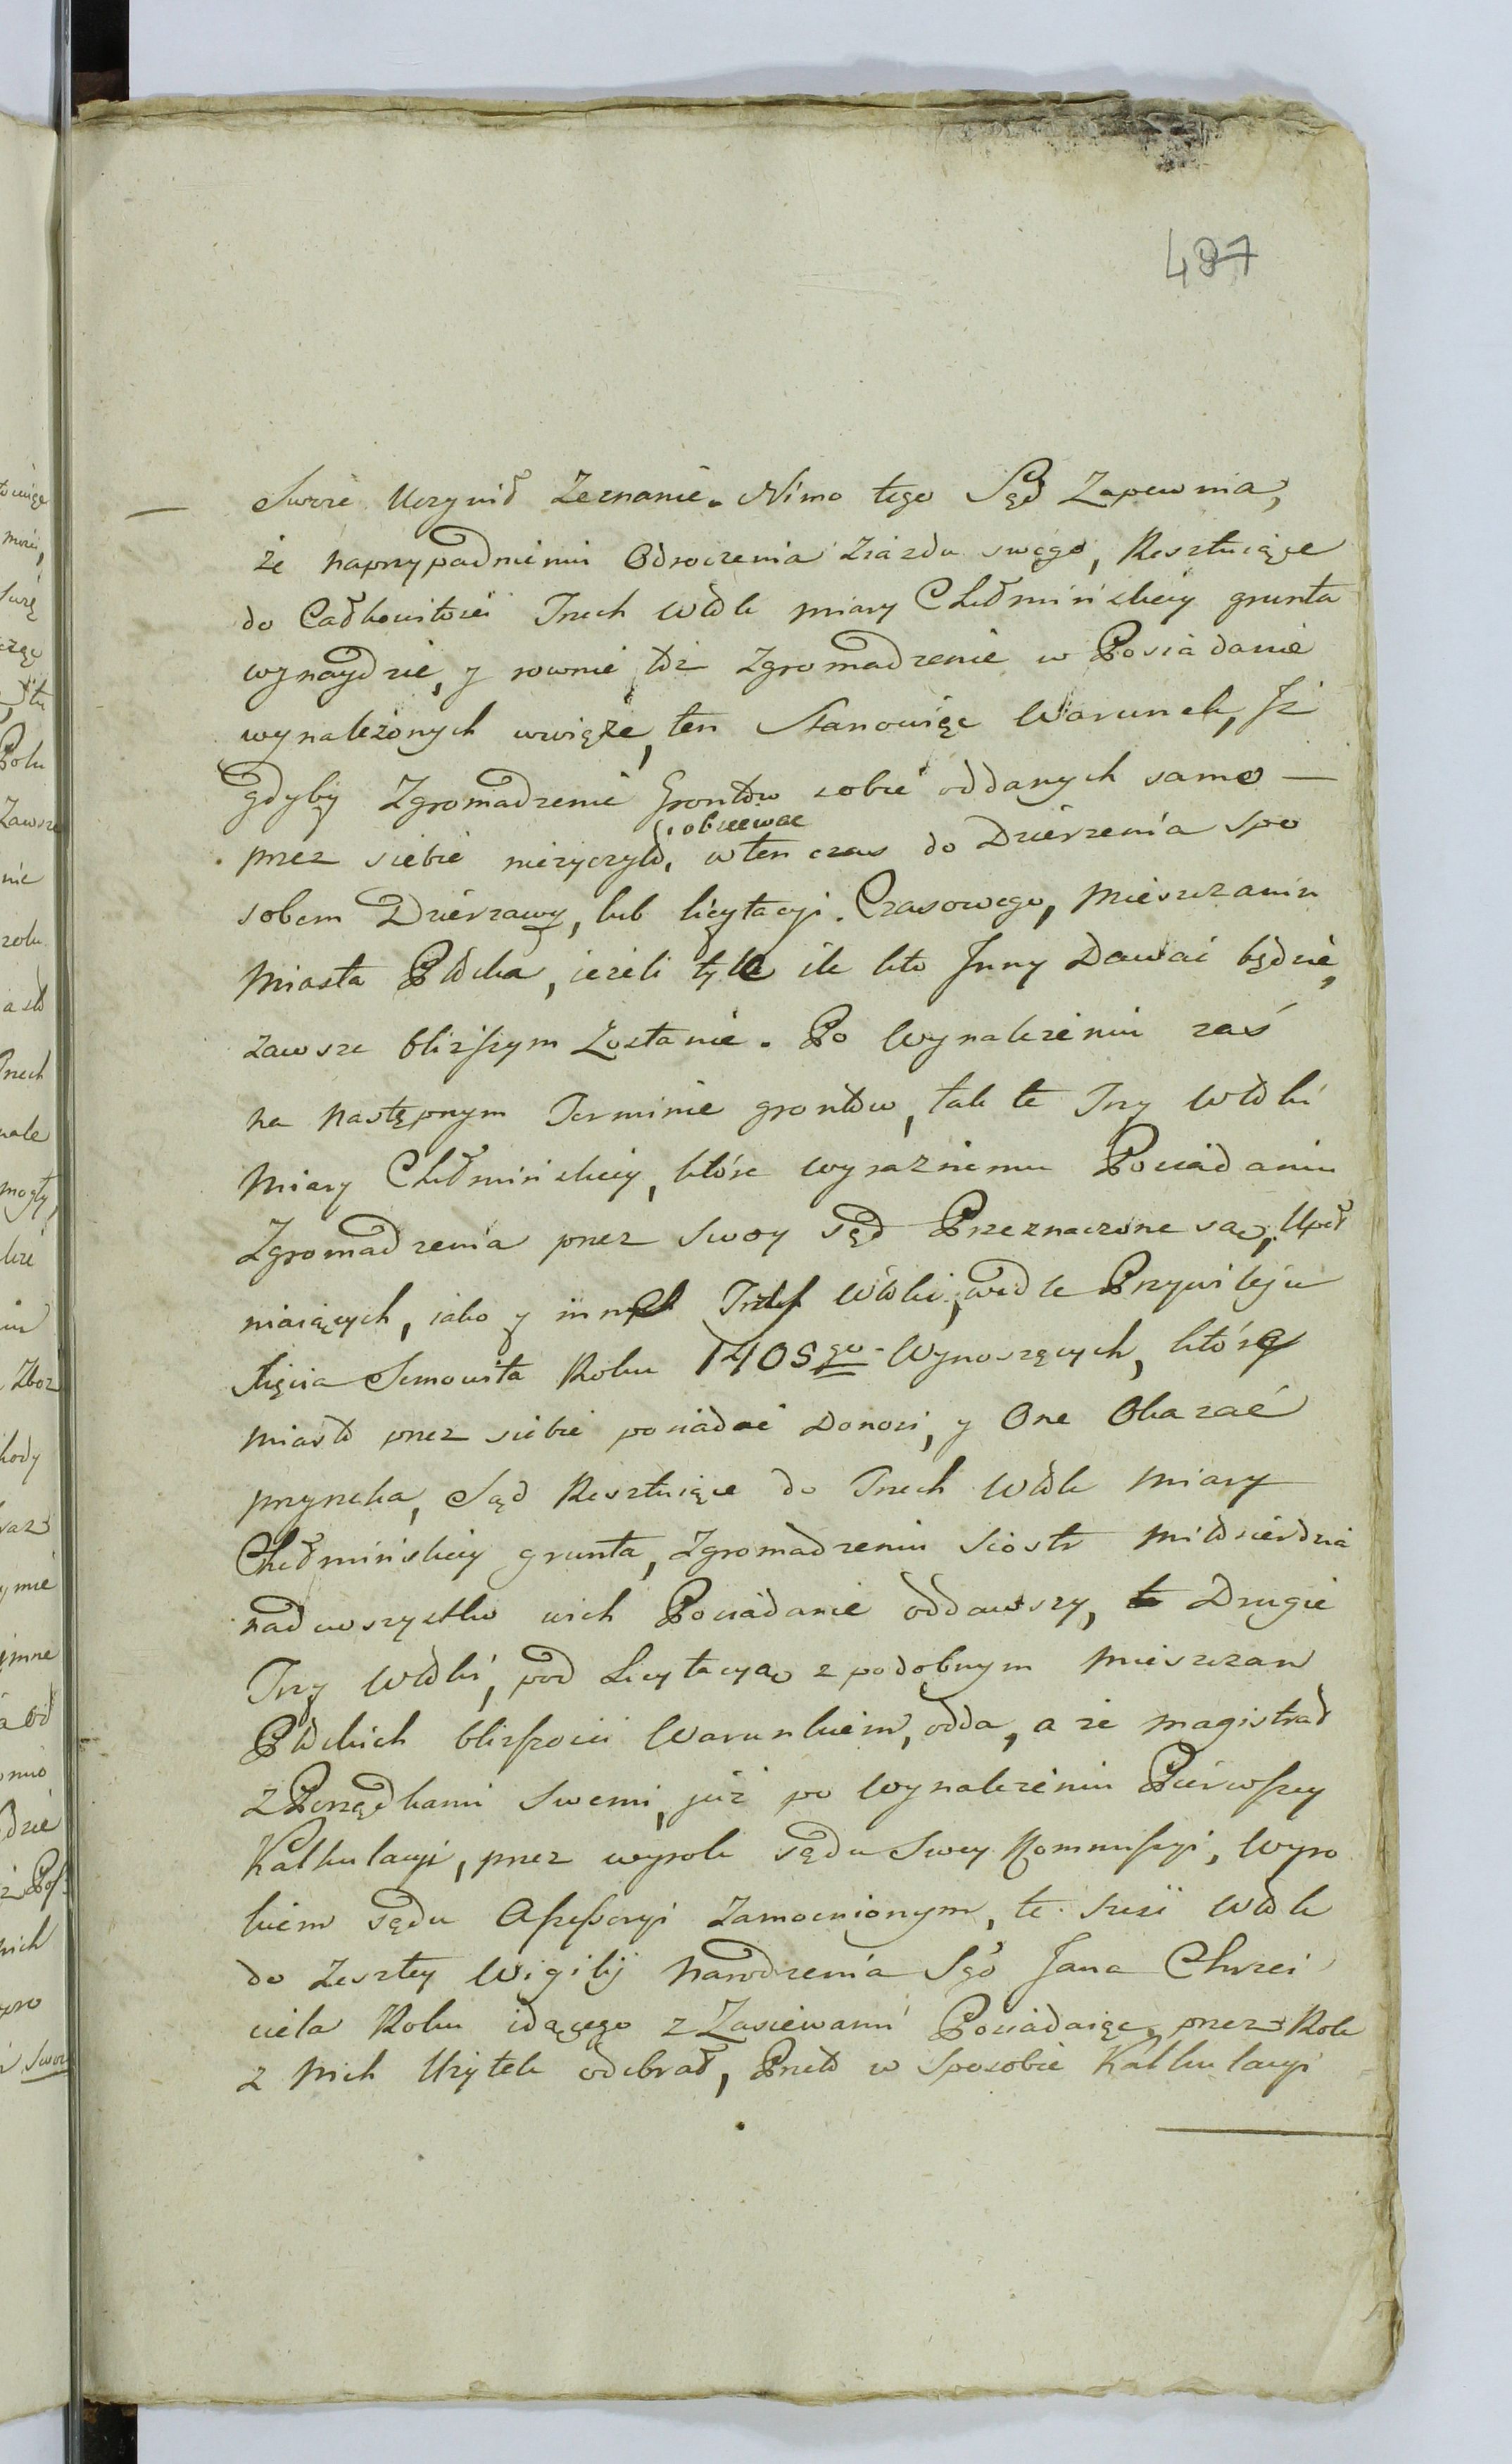 487
Swoie Uczynił Zeznanie. Nimo tego Sąd Zapewnia,
że naprzypadnieniu Odroczenia Ziazdu swego, Resztuiące
do Całkowitości Trzech Włok miary Chełmińskiey grunta
wynaydzie, y rownie też Zgromadzenie w Posiadanie
wynalezionych wwiąże, ten Stanowiąc Warunek, Jż
gdyby Zgromadzenie Grontow sobie oddanych samo —
przez siebie nieżyczyło, obsiewac w ten czas do Dzierżenia spo
sobem Dzierżawy, lub licytacyi. Czasowego, Mieszczanin
Miasta Płocka, ieżeli tyle ile kto Jnny Dawać będzie,
zawsze bliższym Zostanie. Po Wynalezieniu zaś
na następnym Terminie grontow, tak te Trzy Włoki
Miary Chełmińskiey, które wyraźnemu Posiadaniu
Zgromadzenia przez swoy sąd Przeznaczone są, Upeł
niaiących, iako y innych Trzech Włoki, wedle Przywileju
Xięcia Semowita Roku 1405go Wynoszących, które
Miasto przez siebie posiadać Donosi, y One Okazać
przyrzeka, Sąd Resztuiące do Trzech Włok Miary
Chełmińskiey grunta, Zgromadzeniu Siostr Miłosierdzia
nadewszystko wich Posiadanie oddawszy, Drugie
Trzy Włoki, pod Licytacyą z podobnym Mieszczan
Płockich bliższości Warunkiem, odda, a że Magistrat
z Porządkami Swemi, już po Wynalezieniu Pierwszey
Kalkulacyi, przez wyrok sądu Swey Kommissyi, Wyro
kiem sądu Assessoryi Zamocnionym, te sześć Włok
do Zeszłey Wigilij Narodzenia Sgo Jana Chrzci
ciela Roku idącego z Zasiewami Posiadaiąc, przez Rok
z Nich Użytek odebrał, Przeto w Sposobie Kalkulacyi